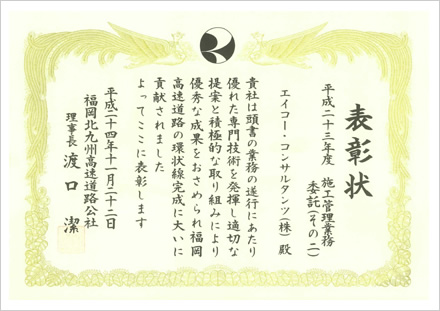 表彰状
平成二十三年度 施工管理業務
委託(その二)
エイコー・コンサルタンツ(株) 殿
貴社は頭書の業務の遂行にあたり
優れた専門技術を発揮し適切な
提案と積極的な取り組みにより
優秀な成果をおさめられ福岡
高速道路の環状線完成に大いに
貢献されました
よってここに表彰します
平成二十四年十一月二十二日
福岡北九州高速道路公社
理事長 渡口 潔